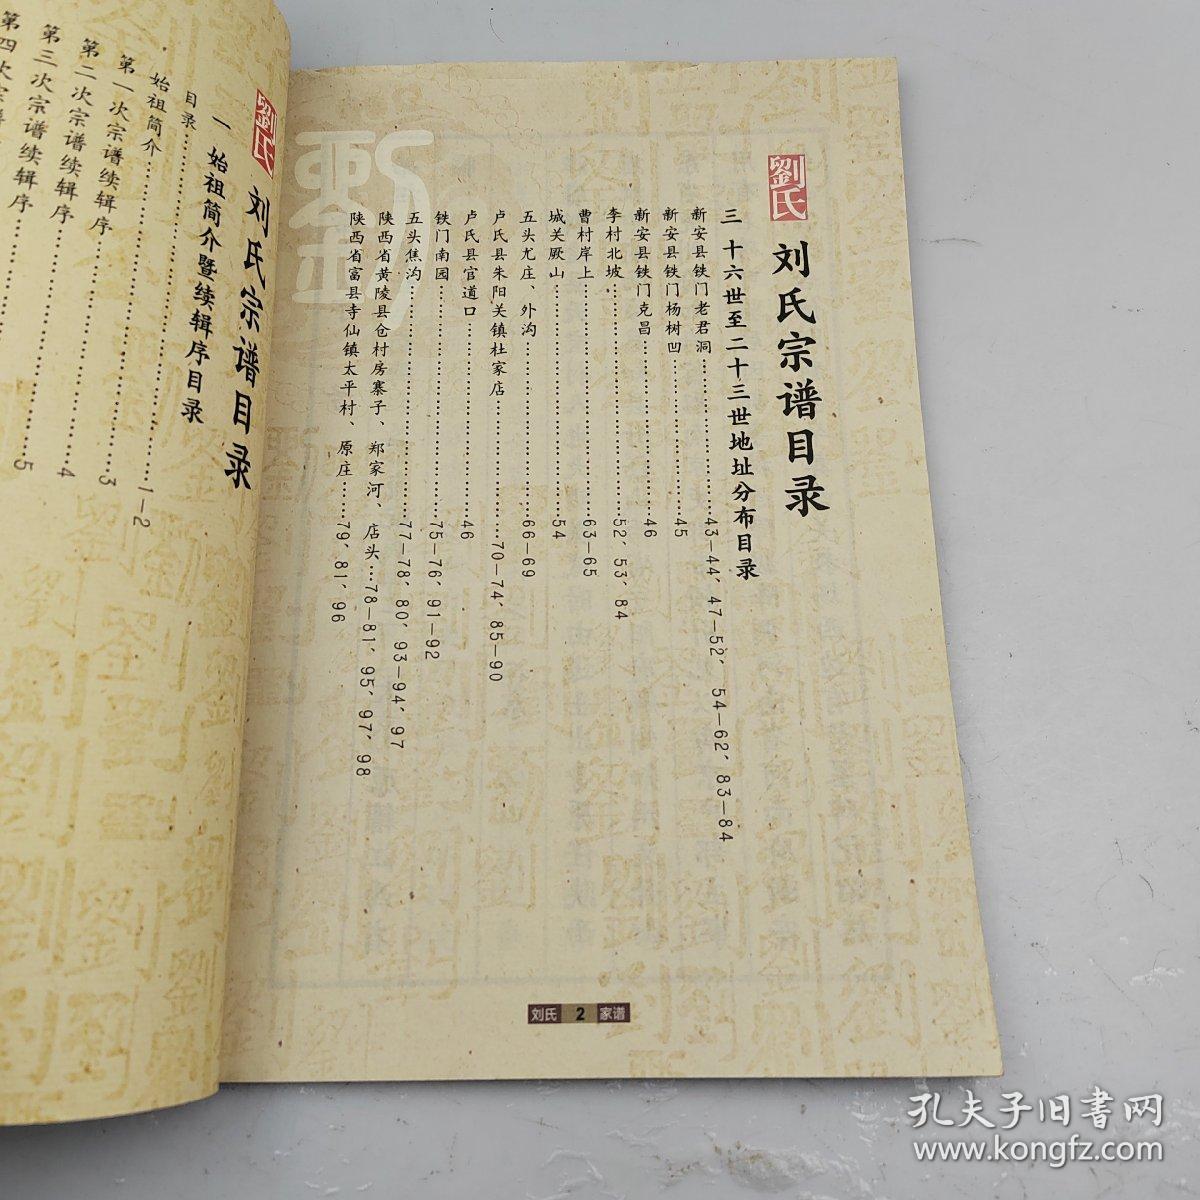 劉氏
刘氏宗谱目录
三 十六世至二十三世地址分布目录
新安县铁门老君洞……………43—44、47—52、54—62、83—84
新安县铁门杨树凹……………45
新安县铁门克昌……………46
李村北坡……………52、53、84
曹村岸上……………63—65
城关厥山……………54
五头尤庄、外沟……………66—69
卢氏县朱阳关镇杜家店……………70—74、85—90
卢氏县官道口……………46
铁门南园……………75—76、91—92
五头焦沟……………77—78、80、93—94、97
陕西省黄陵县仓村房寨子、郑家河、店头…78—81、95、97、98
陕西省富县寺仙镇太平村、原庄……79、81、96
刘氏 2 家谱
劉氏
刘氏宗谱目录
一 始祖简介暨续辑序目录
目录
始祖简介……………1—2
第一次宗谱续辑序……………3
第二次宗谱续辑序……………4
第三次宗谱续辑序……………5
第四次宗
孔夫子旧书网
www.kongfz.com